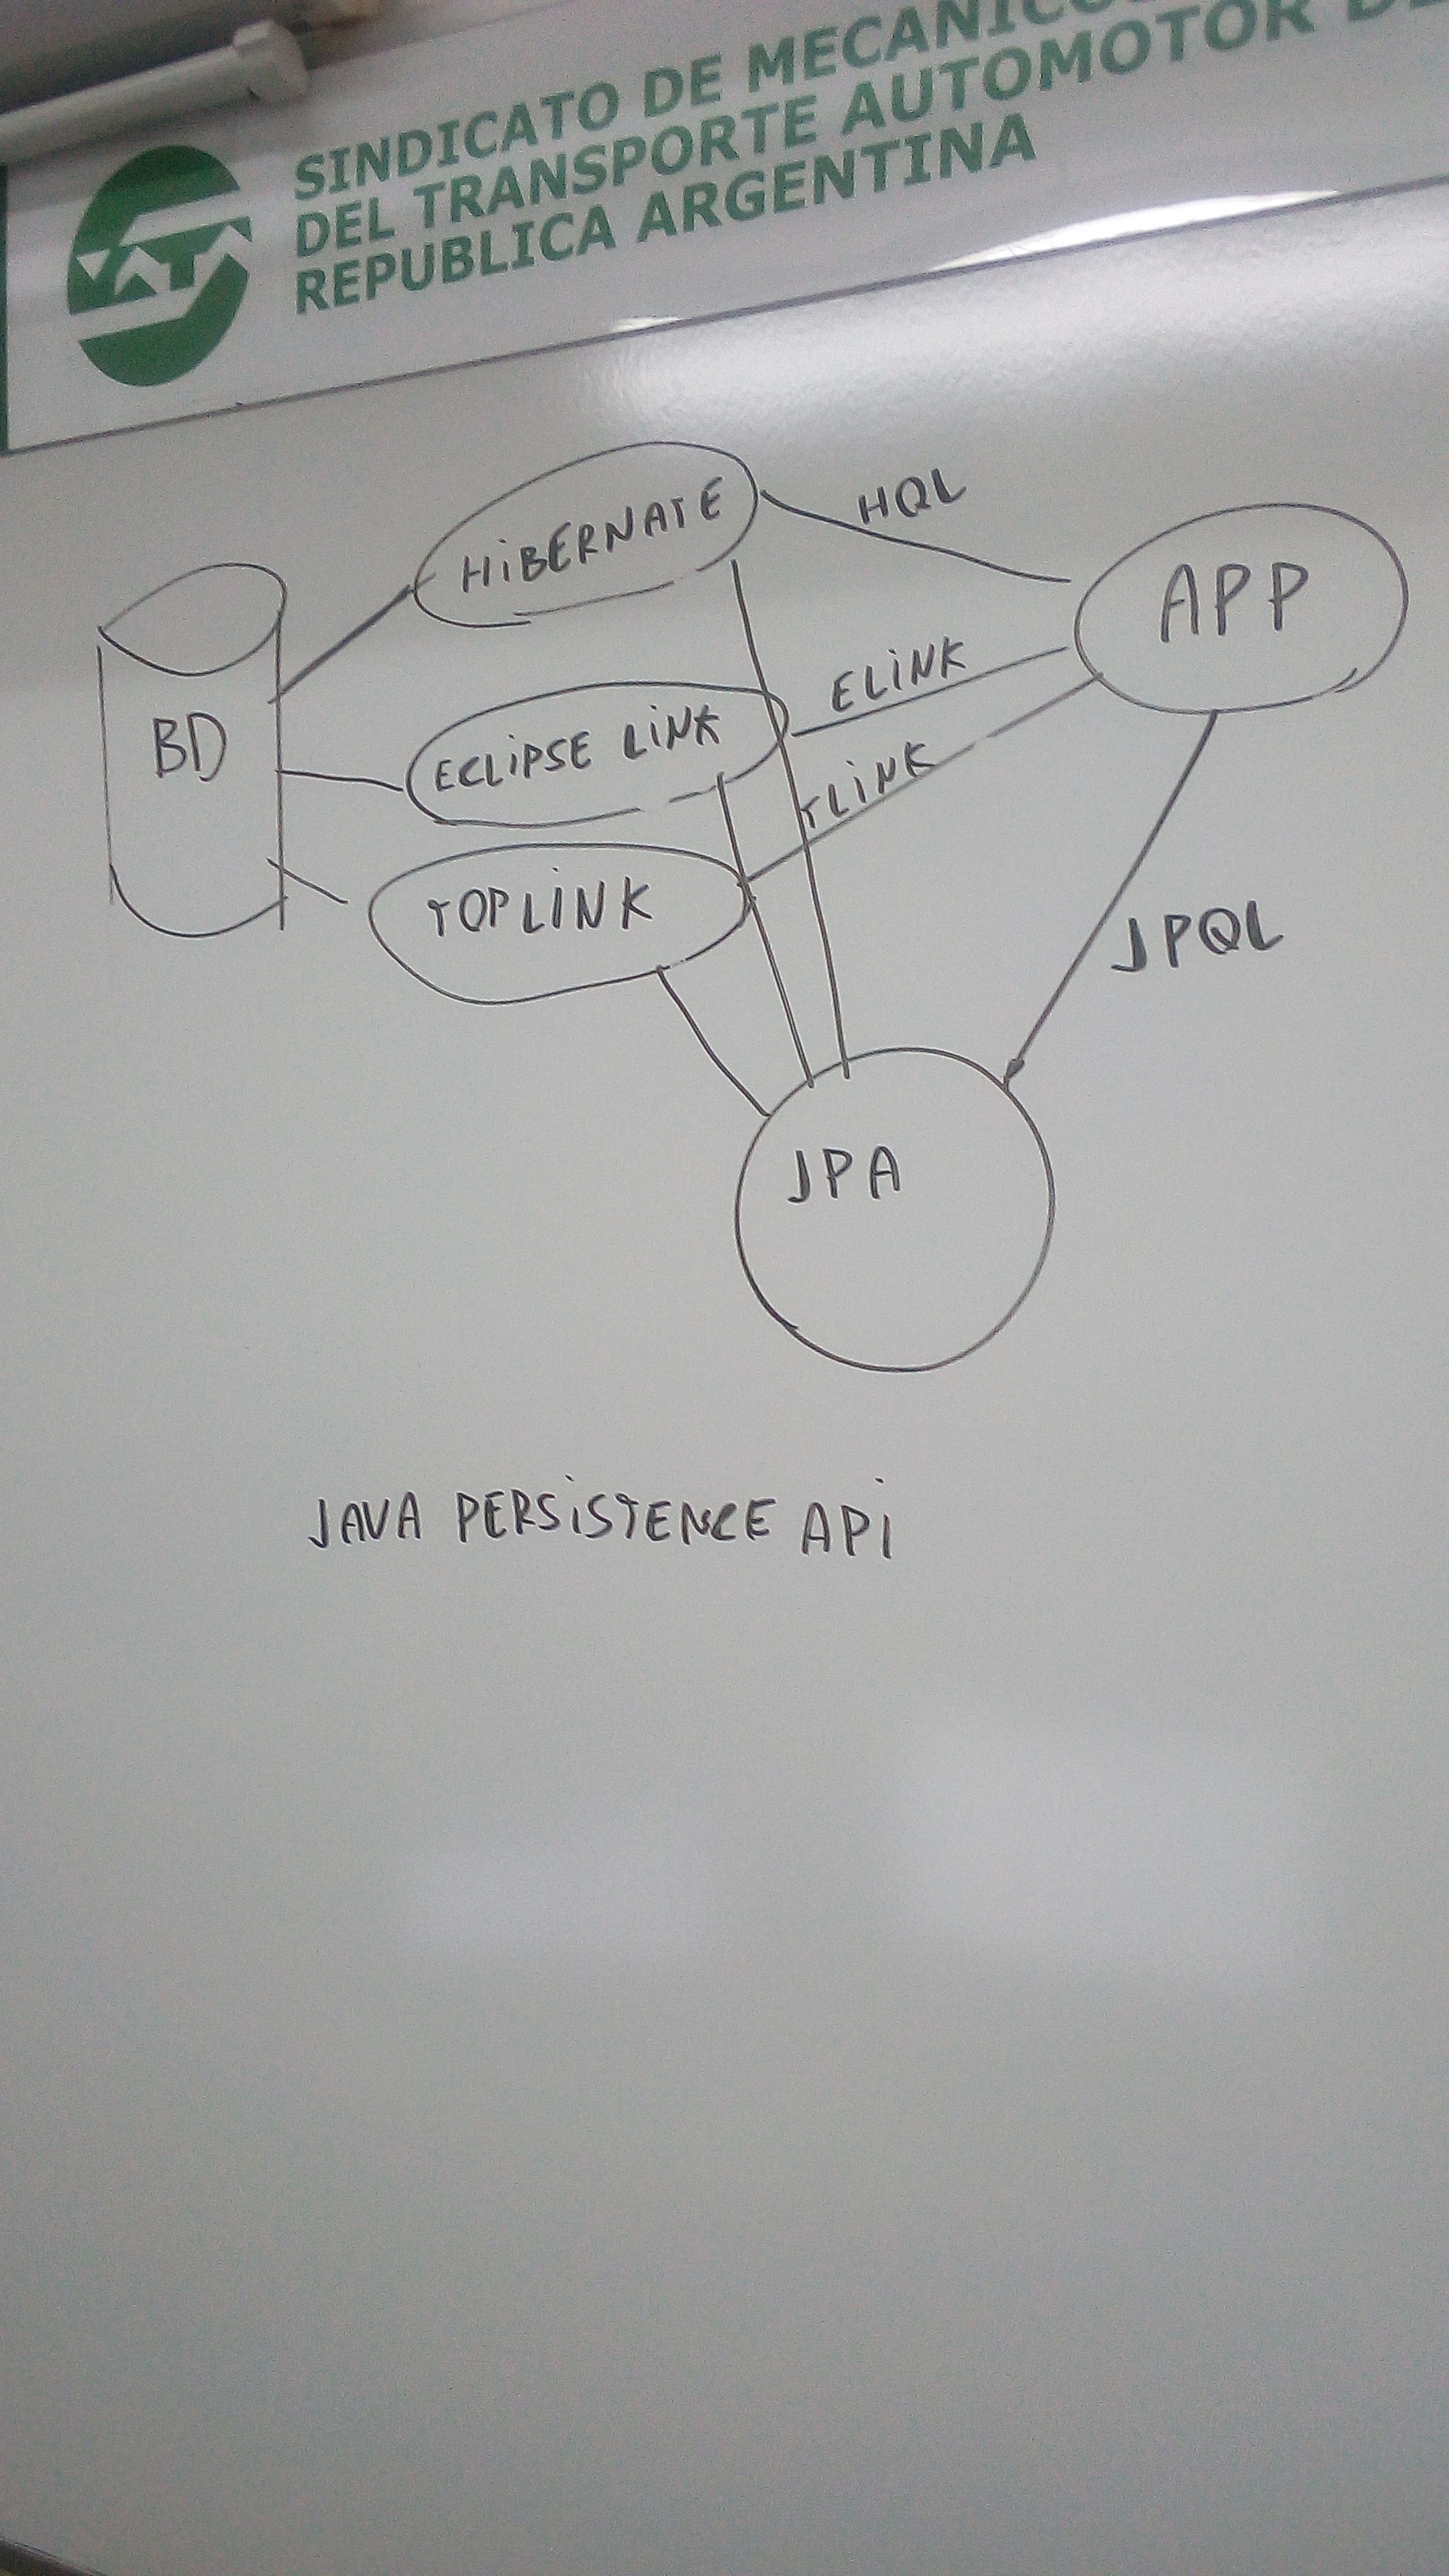 SINDICATO DE MECANICOS
DEL TRANSPORTE AUTOMOTOR DE
REPUBLICA ARGENTINA
HiBERNATE
HQL
APP
BD
ECLiPSE LiNK
ELiNK
TLiNK
TOPLiNK
JPQL
JPA
JAVA PERSiSTENCE APi